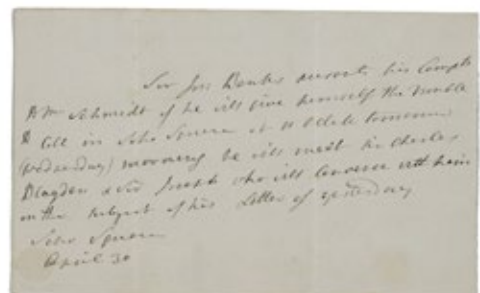 Sir Jos Banks presents his Compts
Mr Schmidt if he will give himself the trouble
to Call in Soho Square at o Clock tomorrow
(Wednesday) morning he will meet Sir Charles
Blagden & Sir Joseph who will Converse with him
on the subject of his Letter of yesterday
Soho Square
April 30